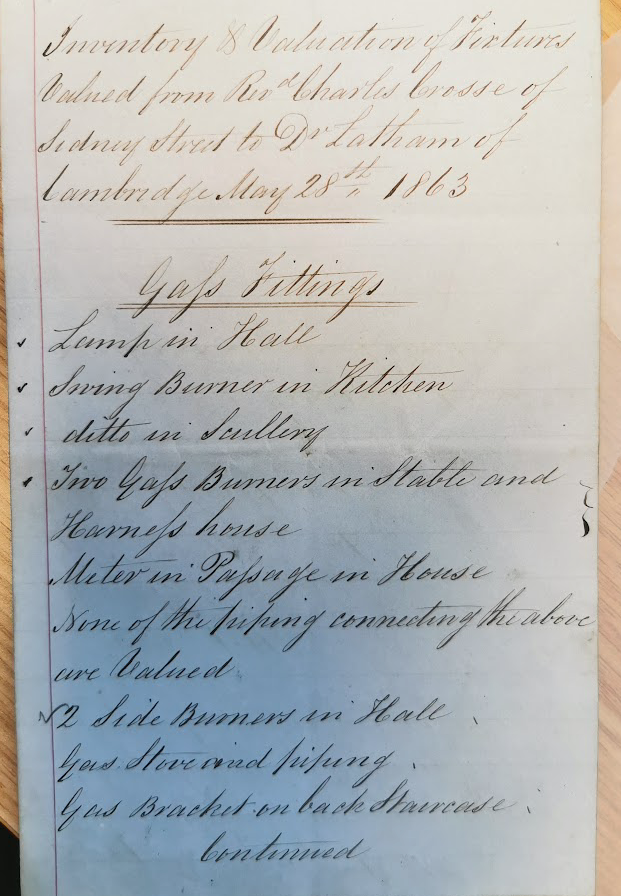 Inventory & Valuation of Fixtures
Valued from Revd Charles Crosse of
Sidney Street to Dr Latham of
Cambridge May 28th 1863
Gaſs Fittings
Lamp in Hall
Swing Burner in Kitchen
ditto in Scullery
Two Gaſs Burners in Stable and
Harneſs house
Meter in Paſsage in House
None of the piping connecting the above
are Valued
2 Side Burners in Hall
Gas Stove and piping
Gas Bracket on back Staircase
Continued